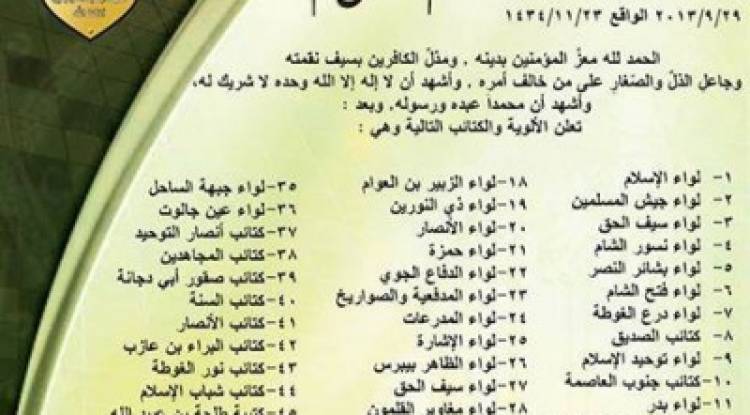 ٢٠١٣/٩/٢٩ الواقع ١٤٣٤/١١/٢٣
الحمد لله معزّ المؤمنين بدينه , ومذلّ الكافرين بسيف نقمته
وجاعل الذلّ والصّغار على من خالف أمره , وأشهد أن لا إله إلا الله وحده لا شريك له,
وأشهد أن محمداً عبده ورسوله, وبعد :
تعلن الألوية والكتائب التالية وهي:
١- لواء الإسلام
٢- لواء جيش المسلمين
٣- لواء سيف الحق
٤- لواء نسور الشام
٥- لواء بشائر النصر
٦- لواء فتح الشام
٧- لواء درع الغوطة
٨- كتائب الصديق
٩- لواء توحيد الإسلام
١٠-كتائب جنوب العاصمة
١١-لواء بدر
١٨-لواء الزبير بن العوام
١٩-لواء ذي النورين
٢٠-لواء الأنصار
٢١-لواء حمزة
٢٢-لواء الدفاع الجوي
٢٣-لواء المدفعية والصواريخ
٢٤-لواء المدرعات
٢٥-لواء الإشارة
٢٦-لواء الظاهر بيبرس
٢٧-لواء سيف الحق
٢٨-لواء مغاوير القلمون
٣٥-لواء جبهة الساحل
٣٦-لواء عين جالوت
٣٧-كتائب أنصار التوحيد
٣٨-كتائب المجاهدين
٣٩-كتائب صقور أبي دجانة
٤٠-كتائب السنة
٤١-كتائب الأنصار
٤٢-كتائب البراء بن عازب
٤٣-كتائب نور الغوطة
٤٤-كتائب شباب الإسلام
٤٥-كتيبة طلحة بن عبيد الله